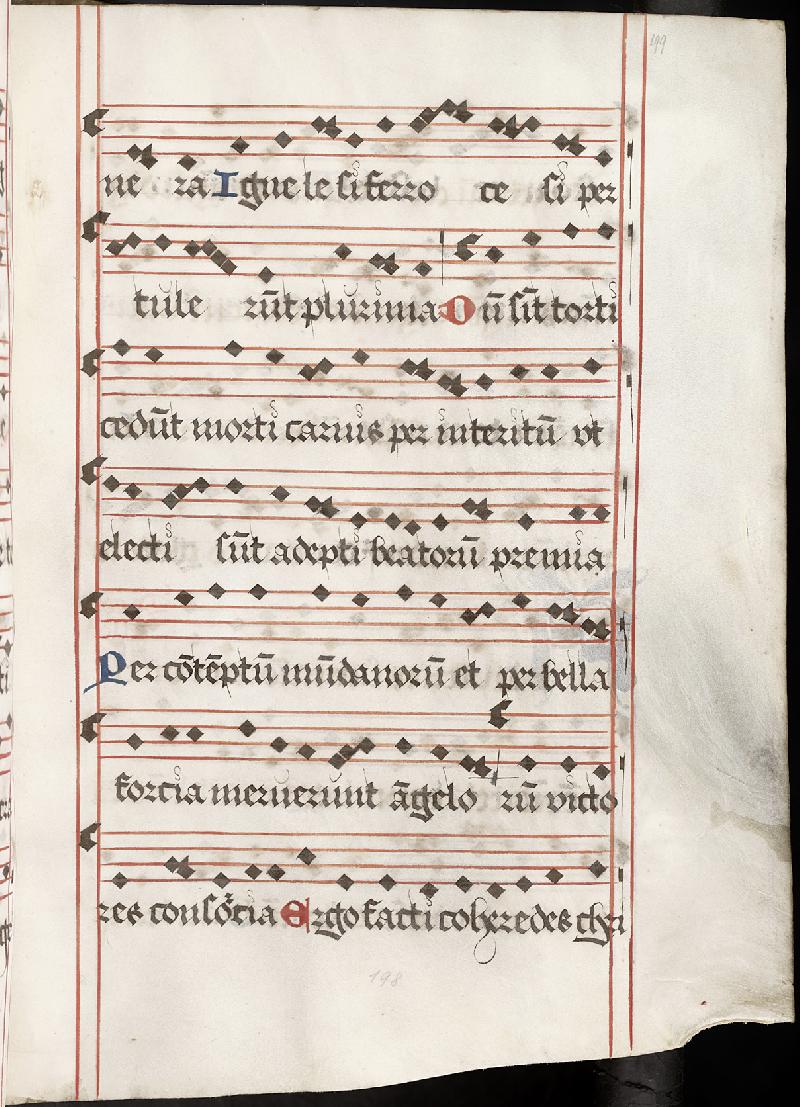 199
ne ra Igne le si ferro ce si per
tule rūt plurima Dū sūt torti
cedūt morti carnis per interitū vt
electi sūt adepti beatorū premia
Per cōtēptū mūdanorū et per bella
forcia meruerunt āgelo rū victo
res consorcia Ergo facti coheredes chri
198